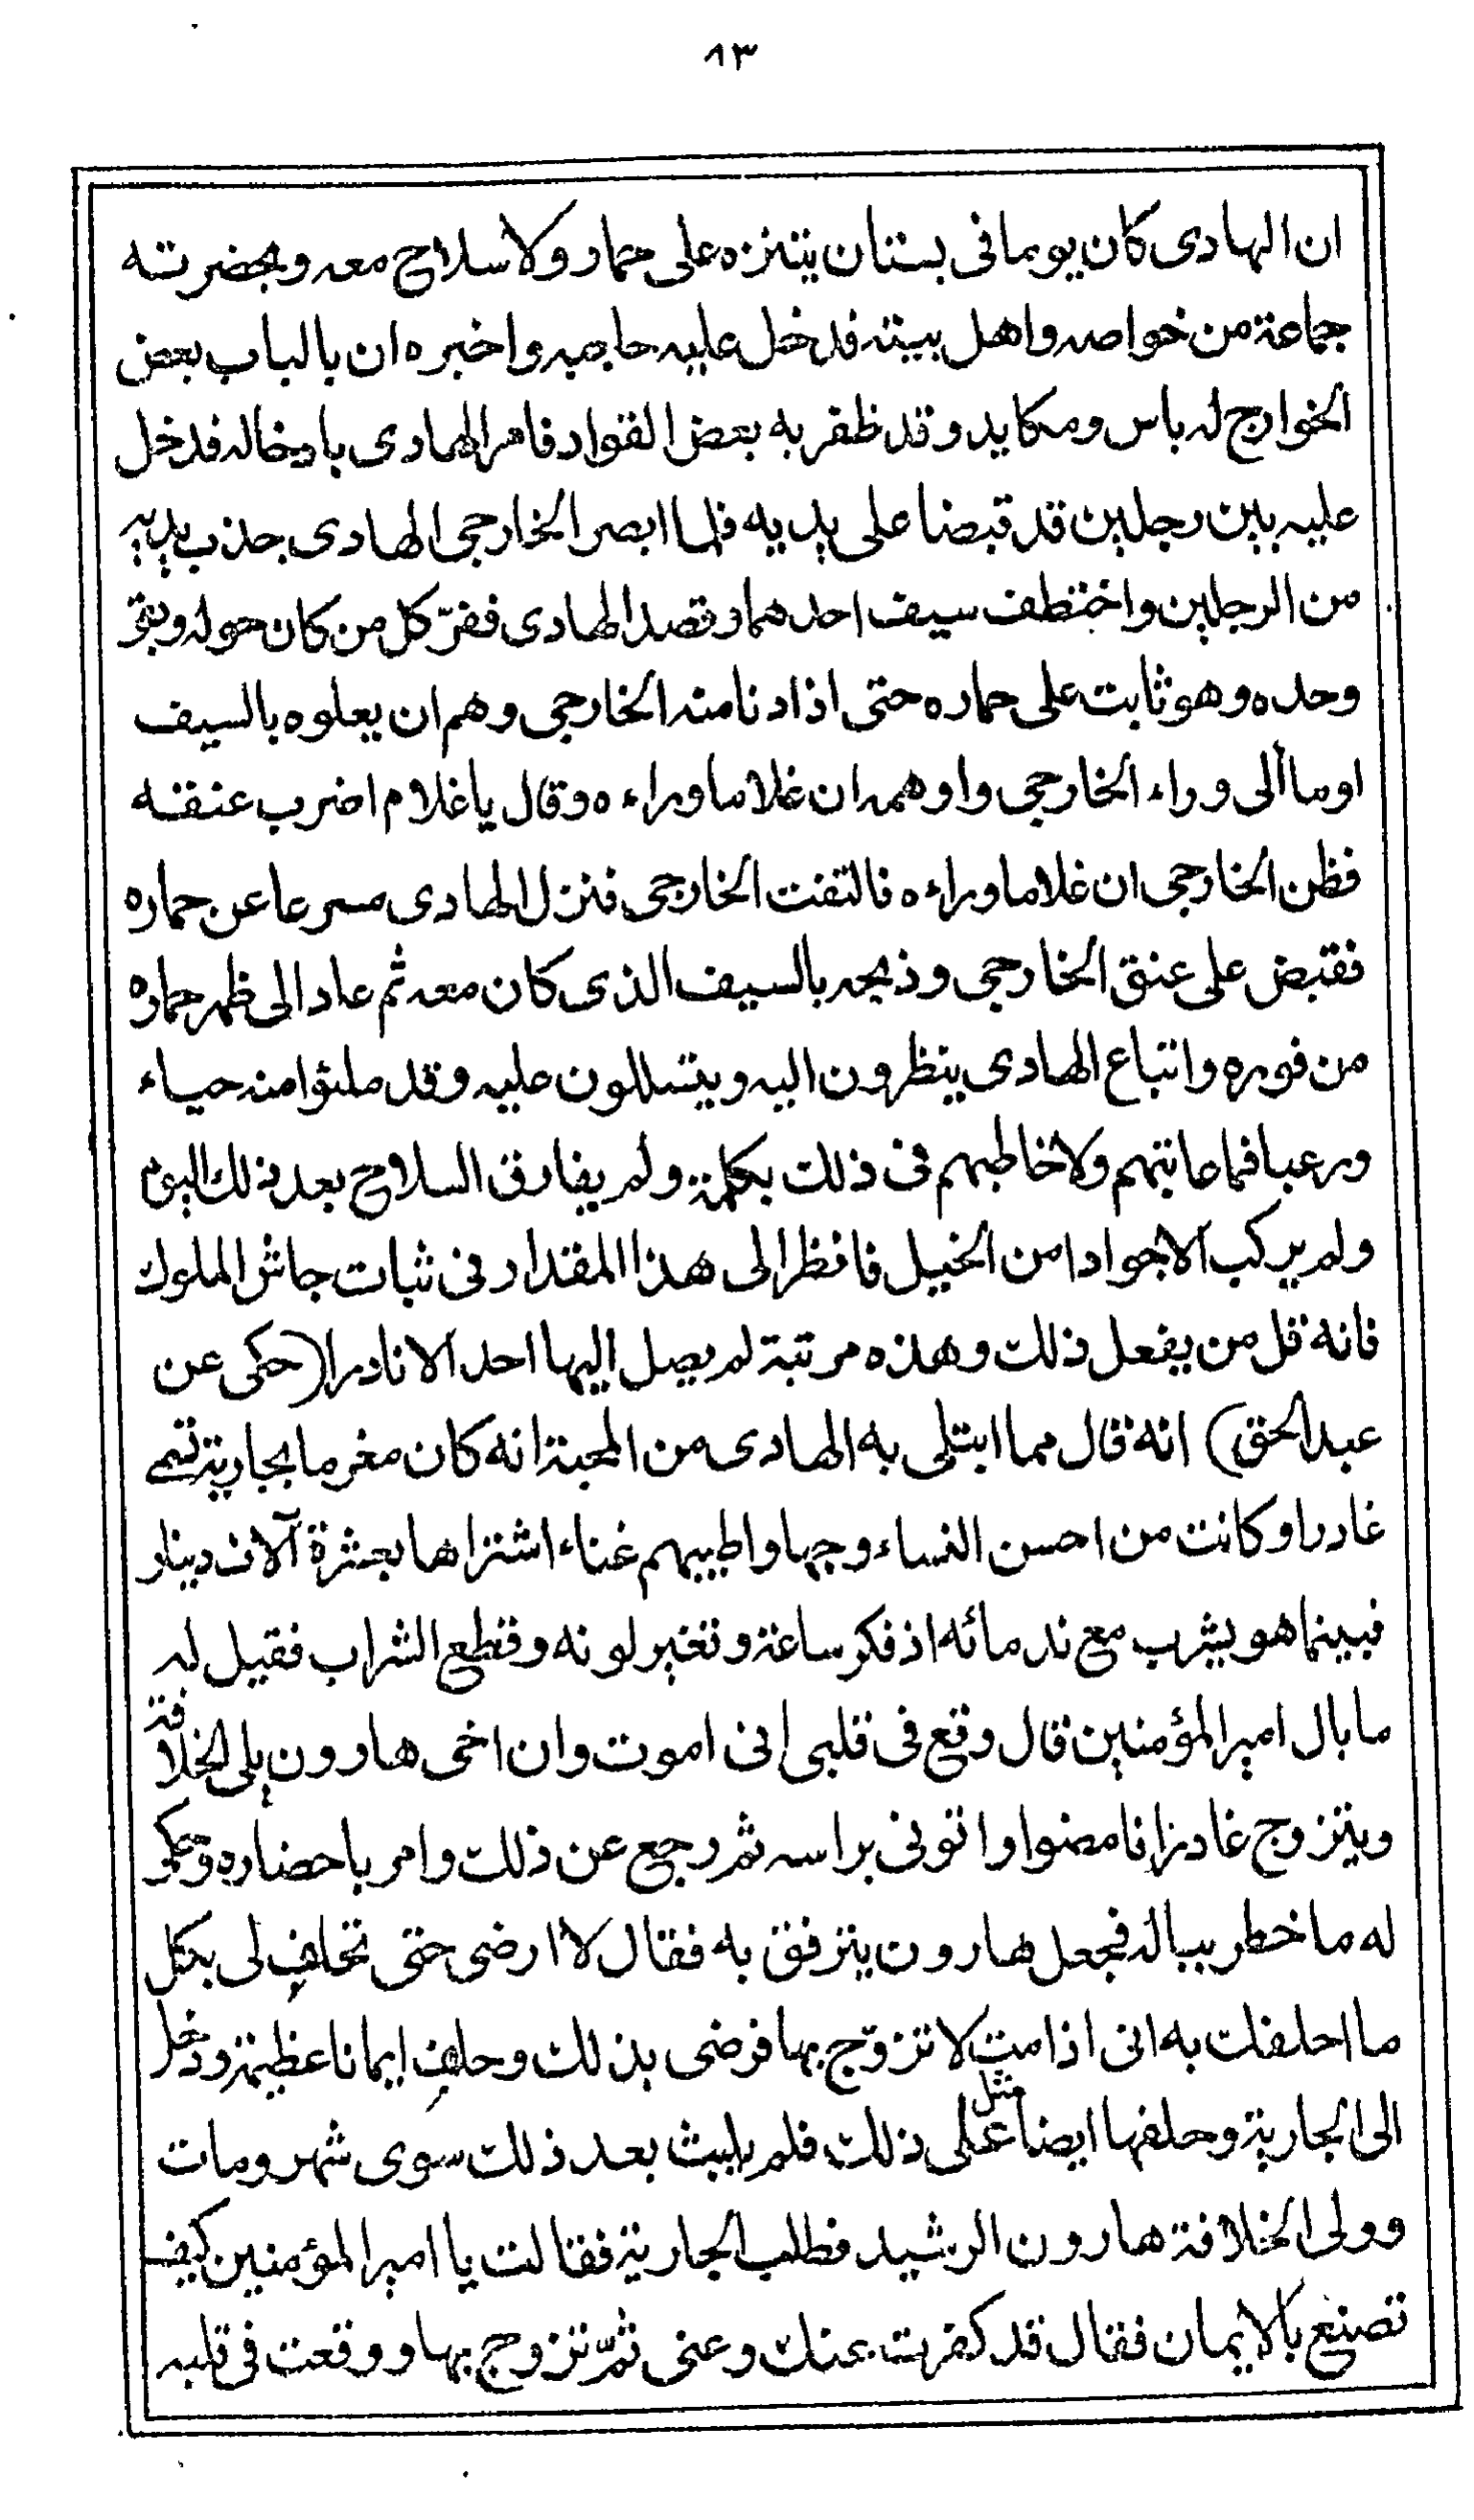 ٨٣
ان الهادى كان يوما فى بستان يتنزه على حمار ولا سلاح معه وبحضرته
جماعة من خواصه واهل بيته فدخل عليه حاجبه واخبره ان بالباب بعض
الخوارج له باس ومكايد وقد ظفر به بعض القواد فامر الهادى بادخاله فدخل
عليه بين رجلين قد قبضا على يديه فلما ابصر الخارجى الهادى جذب يديه
من الرجلين واختطف سيف احدهما وقصد الهادى ففرّ كل من كان حوله وبقى
وحده وهو ثابت على حماره حتى اذا دنا منه الخارجى وهم ان يعلوه بالسيف
اوما الى وراء الخارجى واوهمه ان غلاما وراءه وقال يا غلام اضرب عنقه
فظن الخارجى ان غلاما وراءه فالتفت الخارجى فنزل الهادى مسرعا عن حماره
فقبض على عنق الخارجى وذبحه بالسيف الذى كان معه ثم عاد الى ظهر حماره
من فوره واتباع الهادى ينظرون اليه ويتسللون عليه وقد ملئوا منه حياء
ورعبا فما عاتبهم ولا خاطبهم فى ذلك بكلمة ولم يفارق السلاح بعد ذلك اليوم
ولم يركب الا جوادا من الخيل فانظر الى هذا المقدار فى ثبات جاش الملوك
فانه قل من يفعل ذلك وهذه مرتبة لم يصل اليها احد الا نادرا (حكى عن
عبد الحق) انه قال مما ابتلى به الهادى من المحبة انه كان مغرما بجارية تسمى
غادرا وكانت من احسن النساء وجها واطيبهم غناء اشتراها بعشرة آلاف دينار
فبينما هو يشرب مع ندمائه اذ فكر ساعة وتغير لونه وقطع الشراب فقيل له
ما بال امير المؤمنين قال وقع فى قلبى انى اموت وان اخى هارون يلى الخلافة
ويتزوج غادرا فامضوا واتونى براسه ثم رجع عن ذلك وامر باحضاره وحكى
له ما خطر بباله فجعل هارون يترفق به فقال لا ارضى حتى تحلف لى بكل
ما احلفك به انى اذا مت لا تزوّج بها فرضى بذلك وحلف ايمانا عظيمة ودخل
الى الجارية وحلفها ايضا على مثل ذلك فلم يلبث بعد ذلك سوى شهر ومات
وولى الخلافة هارون الرشيد فطلب الجارية فقالت يا امير المؤمنين كيف
تصنع بالايمان فقال قد كفرت عنك وعنى ثمّ تزوج بها ووقعت فى قلبه